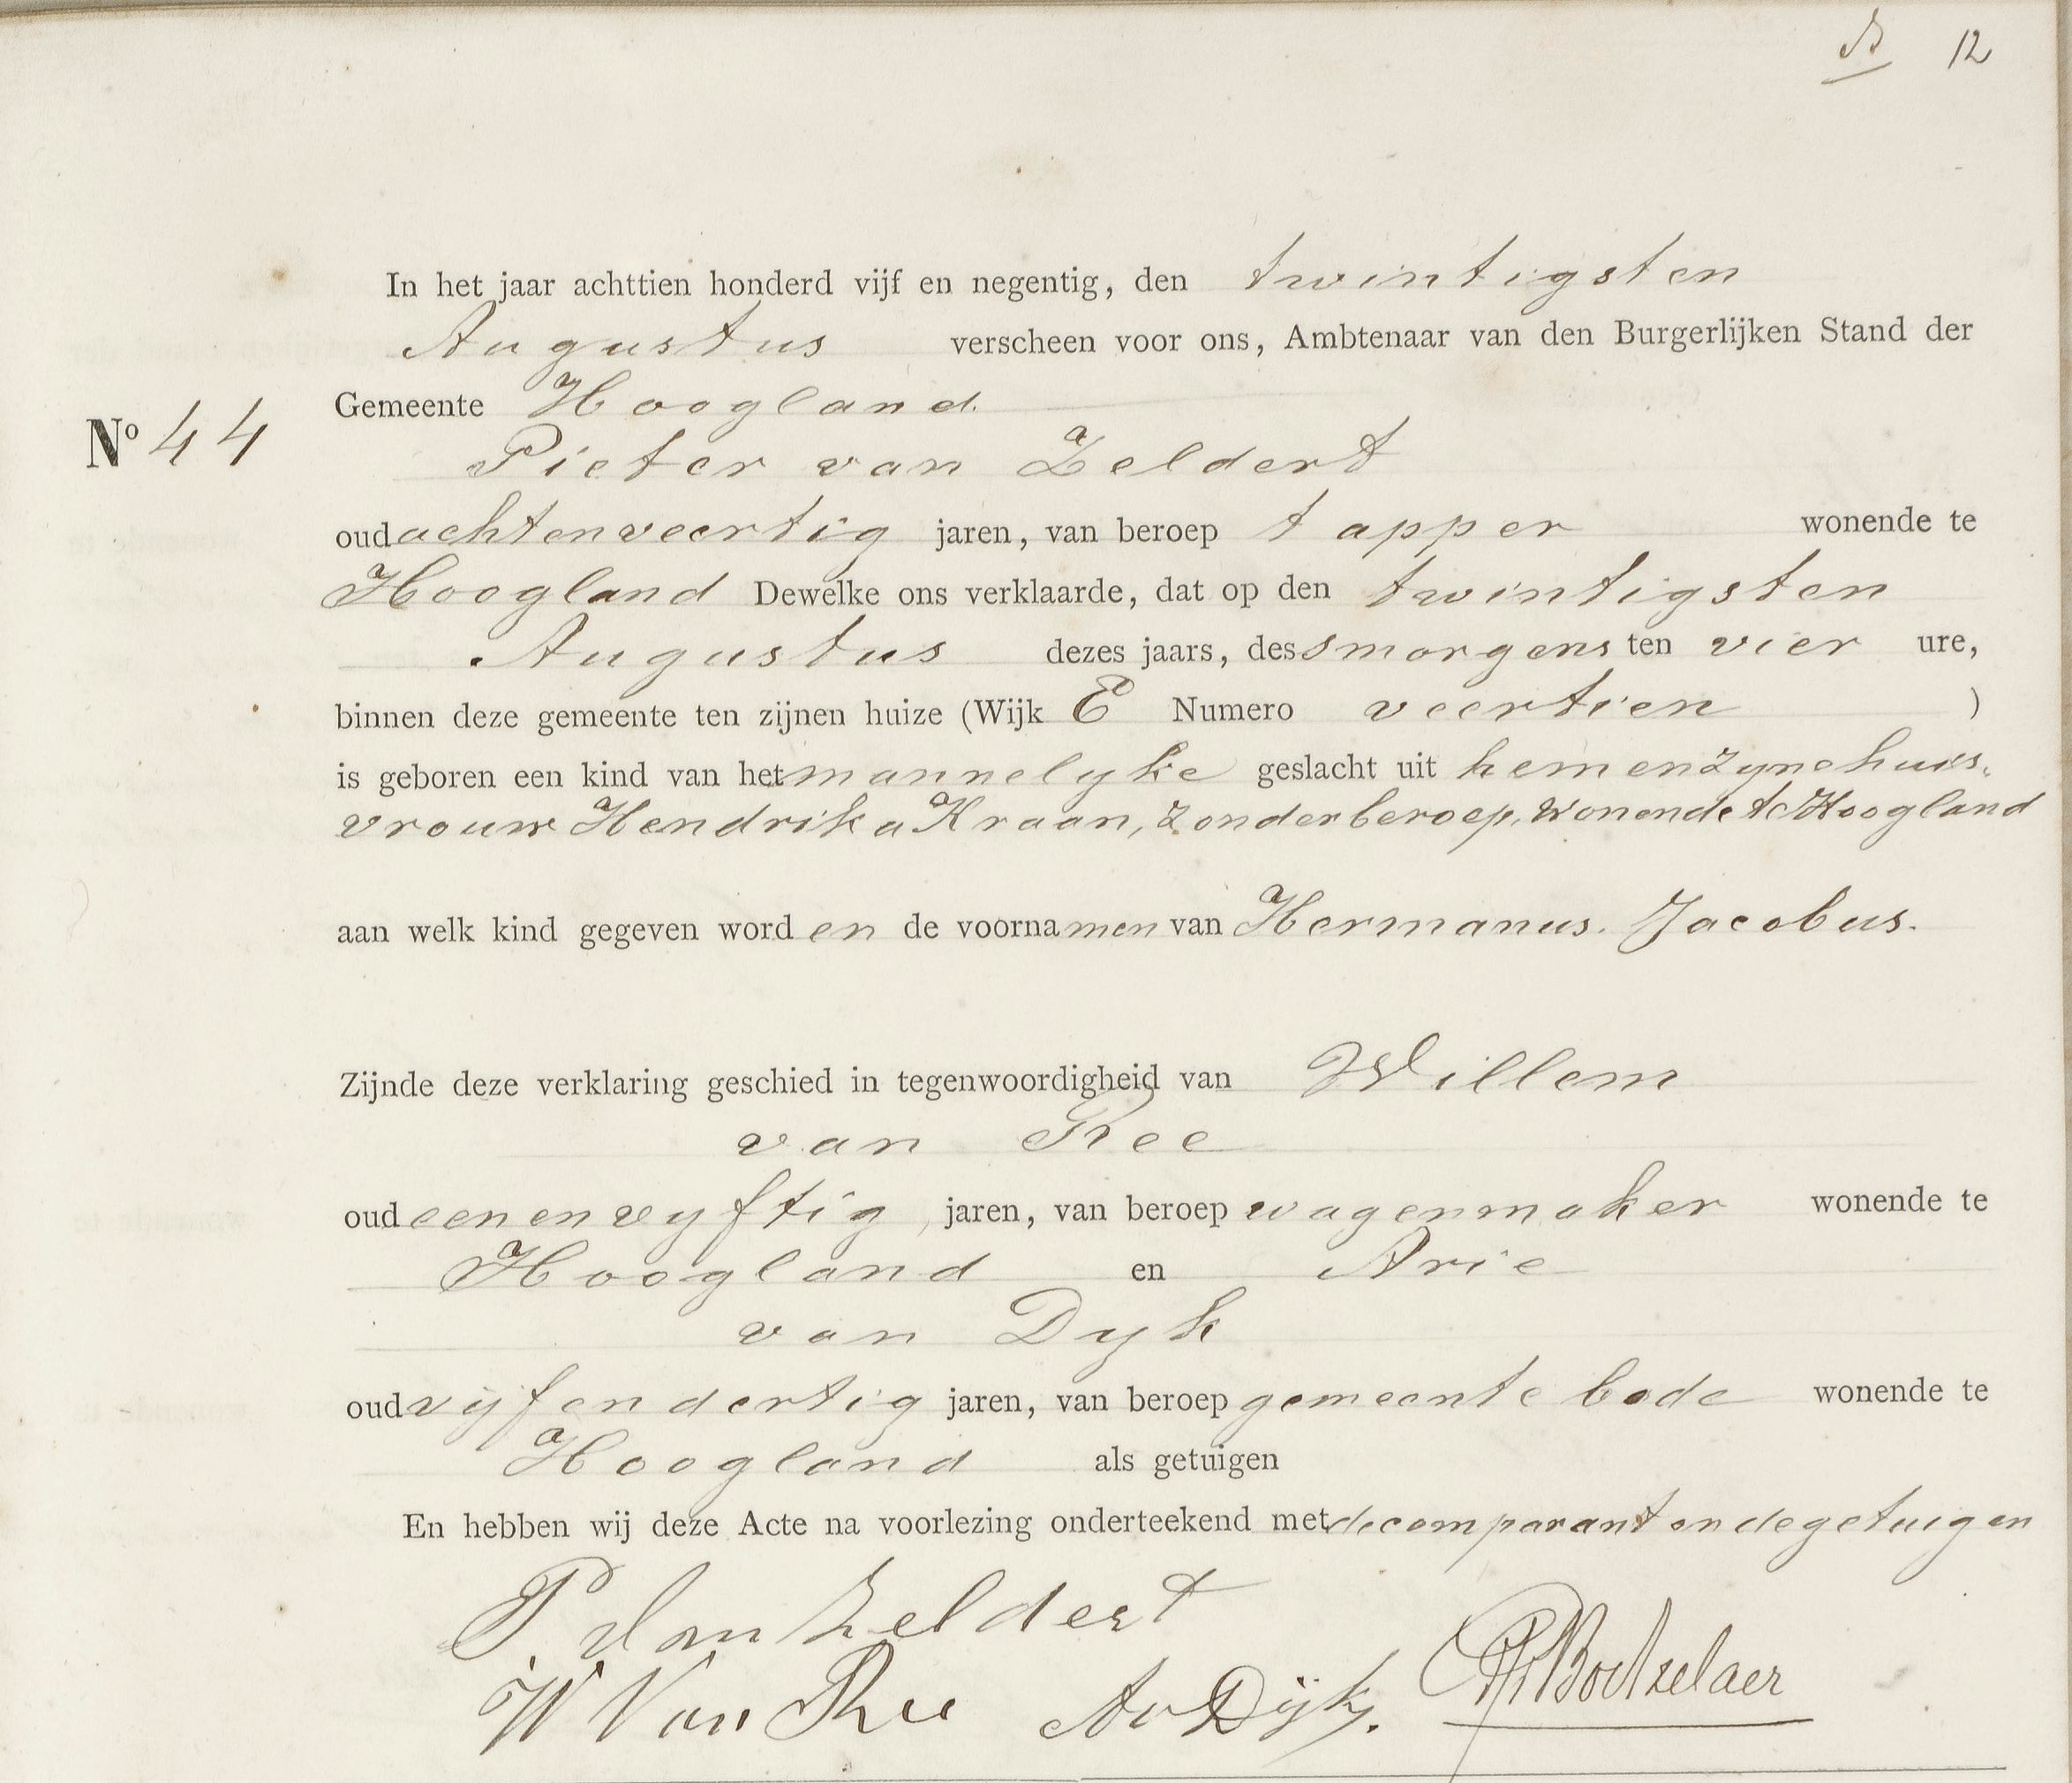 12
In het jaar achttien honderd vijf en negentig, den twintigsten
Augustus verscheen voor ons, Ambtenaar van den Burgerlijken Stand der
Gemeente Hoogland
No 44
Pieter van Zeldert
oud achtenveertig jaren, van beroep tapper wonende te
Hoogland Dewelke ons verklaarde, dat op den twintigsten
Augustus dezes jaars, des smorgens ten vier ure,
binnen deze gemeente ten zijnen huize (Wijk E Numero veertien )
is geboren een kind van het mannelyke geslacht uit hem en zyne huis-
vrouw Hendrika Kraan, zonder beroep, wonende te Hoogland
aan welk kind gegeven word en de voornamen van Hermanus. Jacobus.
Zijnde deze verklaring geschied in tegenwoordigheid van Willem
van Ree
oud eenenvyftig jaren, van beroep wagenmaker wonende te
Hoogland en Arie
van Dyk
oud vijfendertig jaren, van beroep gemeente bode wonende te
Hoogland als getuigen
En hebben wij deze Acte na voorlezing onderteekend met de comparant en de getuigen
P. van Zeldert
W Van Ree AvDijk. Boetzelaer